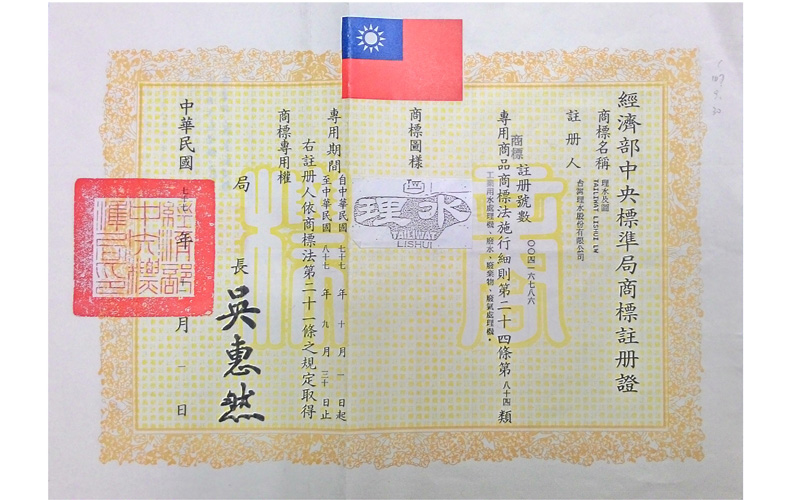 經濟部中央標準局商標註冊證
商標名稱
理水及圖
TAILIWAT LISHUI LW
註冊人
台灣理水股份有限公司
商標註冊號數
〇〇四一六七八六
專用商品商標法施行細則第二十四條第八十四類
工業用水處理機,廢水,廢棄物,廢氣處理機。
商標圖樣
理水
TAILIWAT
LISHUI
專用期間
自中華民國七十七年十月一日起
至中華民國八十七年九月三十日止
右註冊人依商標法第二十一條之規定取得
商標專用權
局長吳惠然
中華民國七十七年月一日
商標